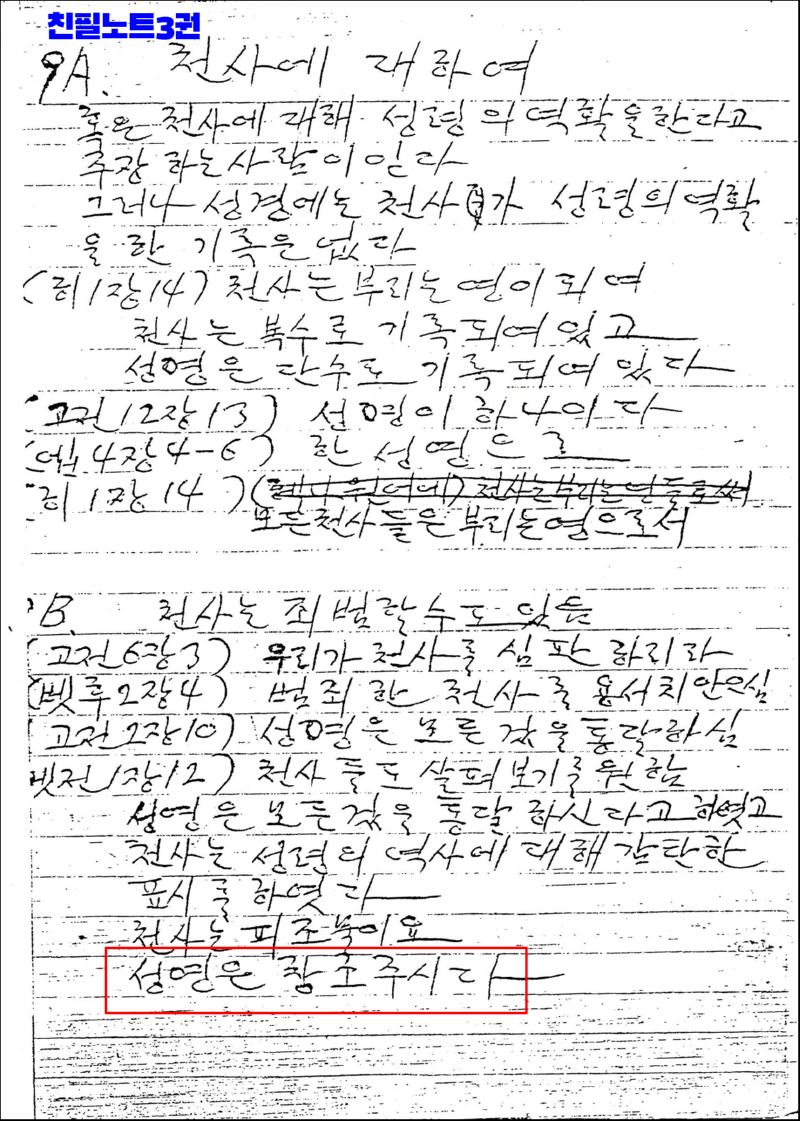 친필노트3권
9A. 천사에 대하여
혹은 천사에 대해 성령의 역활을한다고
주장 하는사람이 잇다
그러나 성경에는 천사 가 성령의역활
을 한 기록은 없다
(히1장14) 천사는부리는 영이 되여
천사는 복수로 기록되여있고
성영은 단수로 기록되여 있다
(고전12장13) 성영이 하나이다
(엡4장4-6) 한 성영으로
히1장14) (
모든천사들은부리는영으로서
B. 천사는 죄범할수도 있음
(고전6장3) 우리가 천사를 심판하리라
(벳후2장4) 범죄한 천사를 용서치안으심
(고전2장10) 성영은 모든것을통달하심
벳전1장12) 천사들도 살펴보기를원함
성영은 모든것을 통달하신다고하엿고
천사는 성령의 역사에대해감탄한
표시를하엿다
천사는 피조물이요
성영은 창조주시다